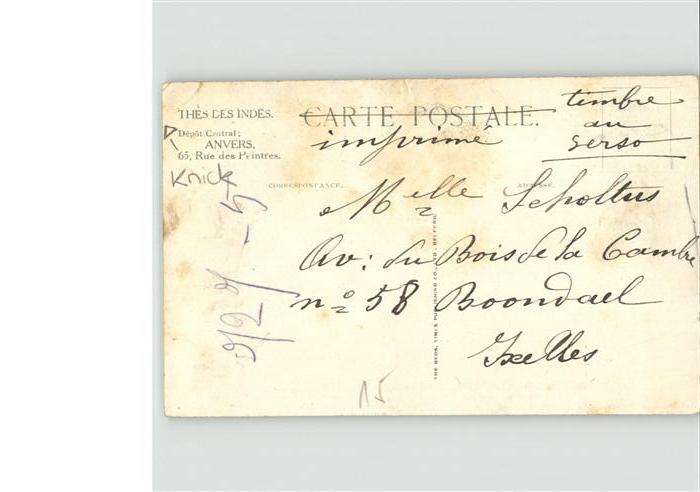 THÉS DES INDES.
Dépôt Central:
ANVERS,
65, Rue des Peintres.
Knick
CARTE POSTALE.
imprimé
timbre
au
verso
CORRESPONDANCE.
ADRESSE.
Melle Scholtus
Av: du Bois de la Cambre
no 58 Boondael
Ixelles
15